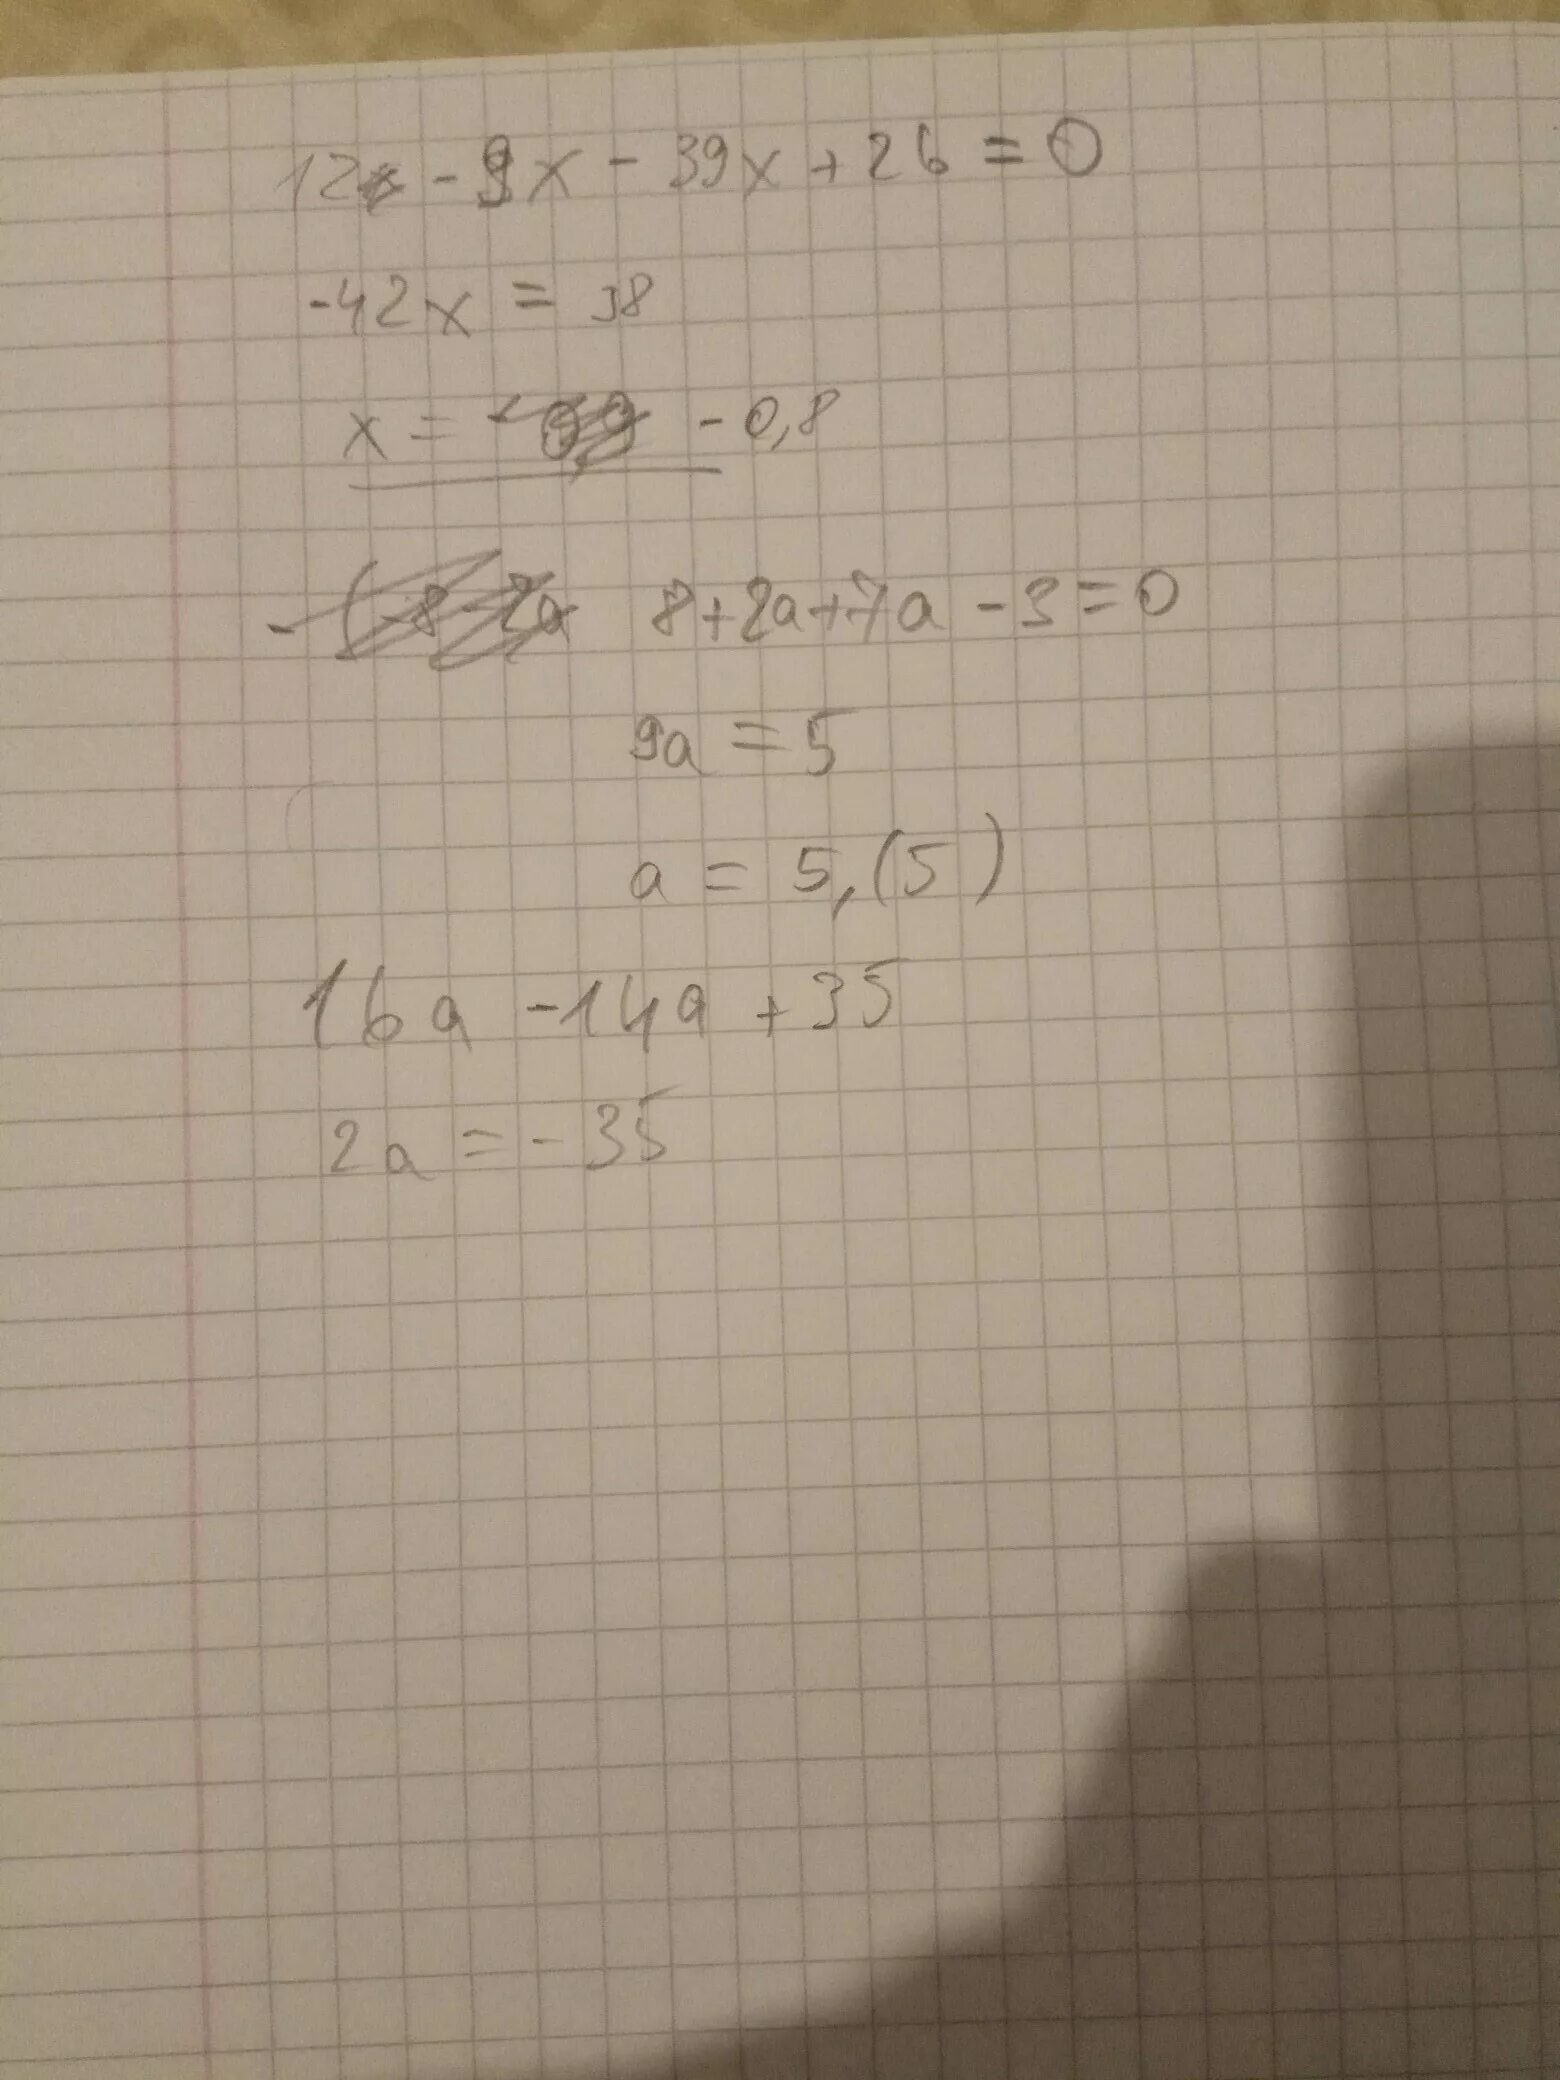 12 - 9x - 39x + 26 = 0
-42x = 38
x = - 0,8
8 + 2a + 7a - 3 = 0
9a = 5
a = 5,(5)
16a - 14a + 35
2a = - 35